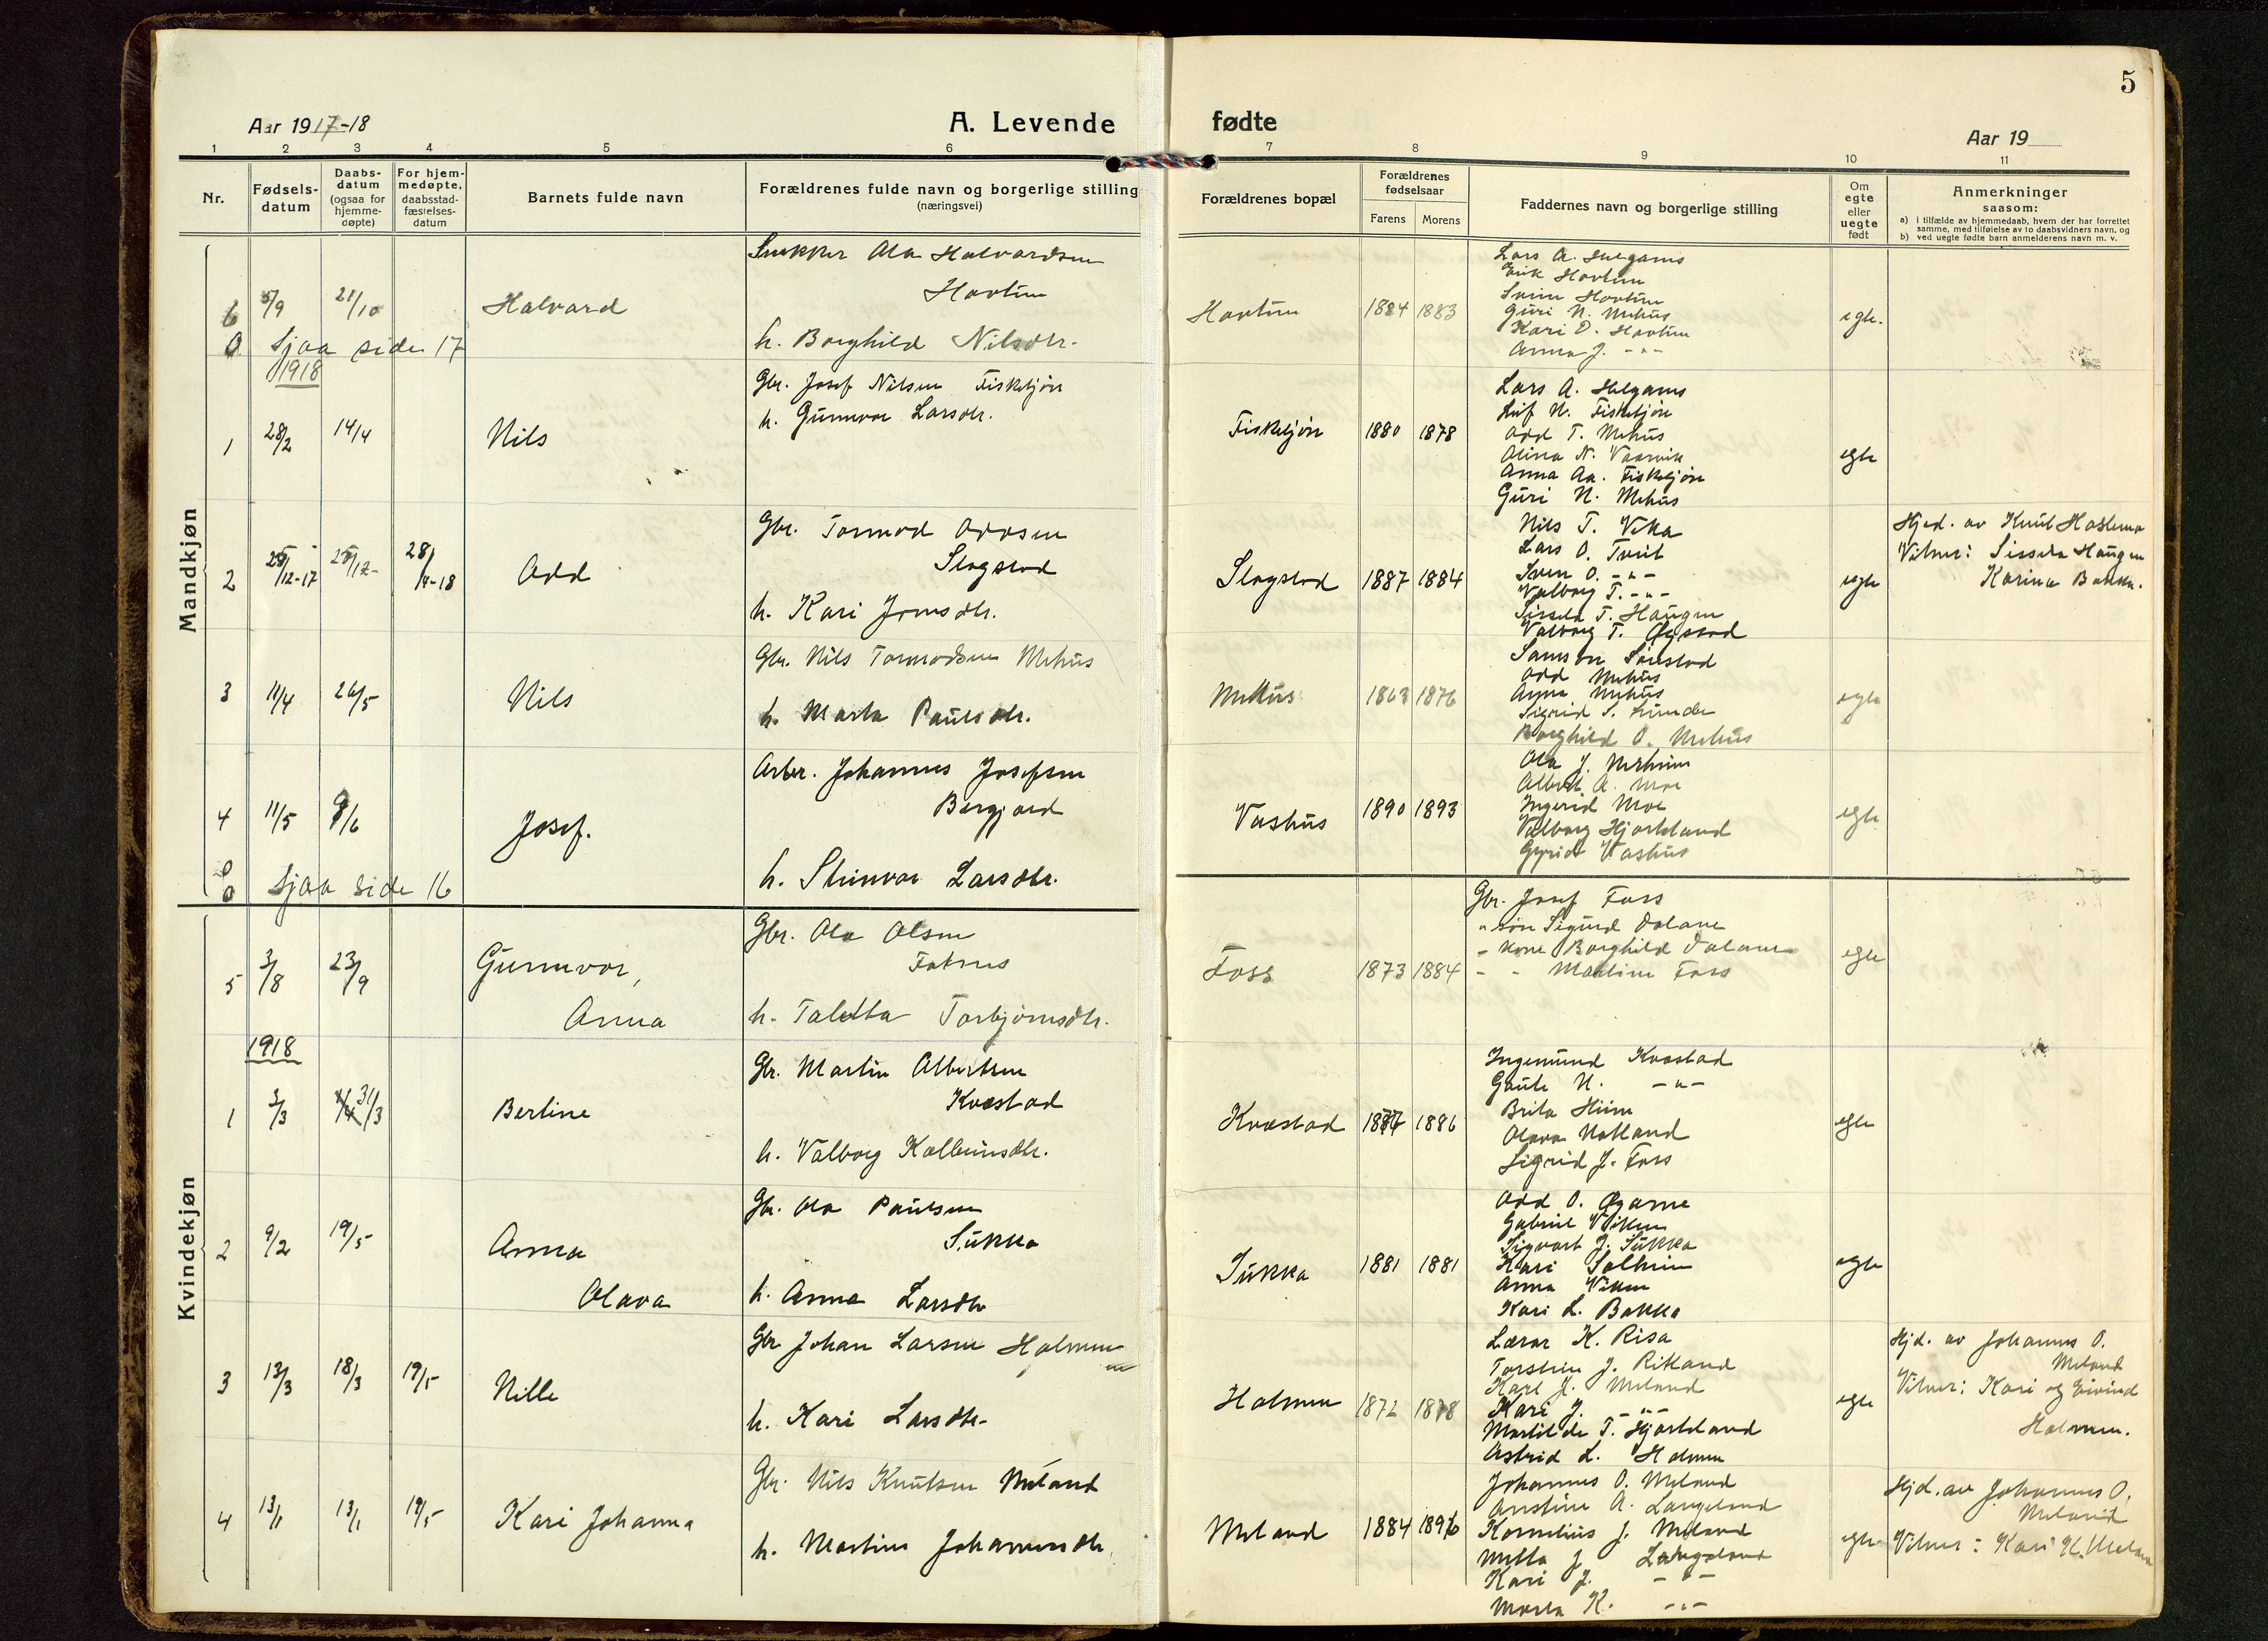 5
Aar 1917-18
A. Levende
fødte
Aar 19
1 2 3 4 5 6 7 8 9 10 11
Nr.
Fødsels-
datum
Daabs-
datum
(ogsaa for
hjemme-
døpte)
For hjem-
medøpte,
daabsstad-
fæstelses-
datum
Barnets fulde navn
Forældrenes fulde navn og borgerlige stilling
(næringsvei)
Forældrenes bopæl
Forældrenes
fødselsaar
Farens Morens
Faddernes navn og borgerlige stilling
Om
egte
eller
uegte
født
Anmerkninger
saasom:
a) i tilfælde av hjemmedaab, hvem der har forrettet
samme, med tilføielse av to daabsvidners navn, og
b) ved uegte fødte barn anmelderens navn m. v.
Mandkjøn
6 5/9 21/10 Halvard
Snekker Ola Halvardsen
Hovtun
h. Borghild Nilsdtr.
Hovtun 1884 1883
Lars A. Helganes
Erik Hovtun
Svein Hovtun
Guri N. Mehus
Kari O. Hovtun
Anna J. -"-
egte.
Sjaa side 17
1918
1 28/2 14/4 Nils
Gbr. Josef Nilsen Fisketjøn
h. Gunnvor Larsdtr.
Fisketjøn 1880 1878
Lars A. Helganes
Leif N. Fisketjøn
Odd T. Mehus
Olina N. Vaarvik
Anna Aa. Fisketjøn
Guri N. Mehus
egte
2 25/12-17 25/12- 28/4-18 Odd
Gbr. Tormod Oddsen
Slogstad
h. Kari Jonsdtr.
Slogstad 1887 1884
Nils T. Veka
Lars O. Tveit
Sven O. -"-
Valborg T. -"-
Sissela T. Haugen
Valborg T. Øystad
egte
Hjed. av Knut Haslemo
Vitner: Sissela Haugen
Karina Bakka.
3 11/4 26/5 Nils
Gbr. Nils Tormodsen Mehus
h. Marta Paulsdtr.
Mehus 1863 1876
Samson Sørestad
Odd Mehus
Anna Mehus
Sigrid S. Lunde
Borghild O. Mehus
egte
4 11/5 9/6 Josef.
Arber. Johannes Josefsen
Bergjord
h. Steinvor Larsdtr.
Vashus 1890 1893
Ola J. Mehsim
Albert A. Moe
Ingerid Moe
Valborg Hjorteland
Gyrid Vashus
egte
Sjaa side 16
Kvindekjøn
5 3/8 23/9 Gunnvor,
Anna
Gbr. Ola Olsen
Fatnes
h. Taletta Torbjørnsdtr.
Foss 1873 1884
Gbr. Josef Foss
" søn Sigurd Dalane
- kone Borghild Dalane
- - Martine Foss
egte
1918
1 3/3 1/4 31/3 Berline
Gbr. Martin Albertsen
Kvæstad
h. Valborg Kolbeinsdtr.
Kvæstad 1877 1886
Ingemund Kvæstad
Gaute N. -"-
Brita Hiim
Olava Natland
Sigrid J. Foss
egte
2 9/2 19/5 Anna
Olava
Gbr. Ola Paulsen
Sukka
h. Anna Larsdtr
Sukka 1881 1881
Odd O. Øgarne
Gabriel Viken
Sigvart J. Sukka
Kari Solheim
Anna Viken
Kari L. Bakka
egte
3 13/3 18/3 19/5 Nille
Gbr Johan Larsen Holmen
h. Kari Larsdtr-
Holmen 1872 1878
Lærar K. Risa
Torstein J. Ritland
Karl J. Meland
Kari J. -"-
Martilde T. Hjorteland
Astrid L. Holmen
egte
Hjd. av Johannes O.
Meland
Vitner: Kari og Eivind
Holmen.
4 13/1 13/1 19/5 Kari Johanna
Gbr. Nils Knutsen Meland
h. Martine Johannesdtr.
Meland 1884 1896
Johannes O. Meland
Anstine A. Langeland
Kornelius J. Meland
Metta J. Langeland
Kari J. - " -
Marta K. -"-
egte
Hjd. av Johannes O.
Meland
Vitner: Kari K. Meland